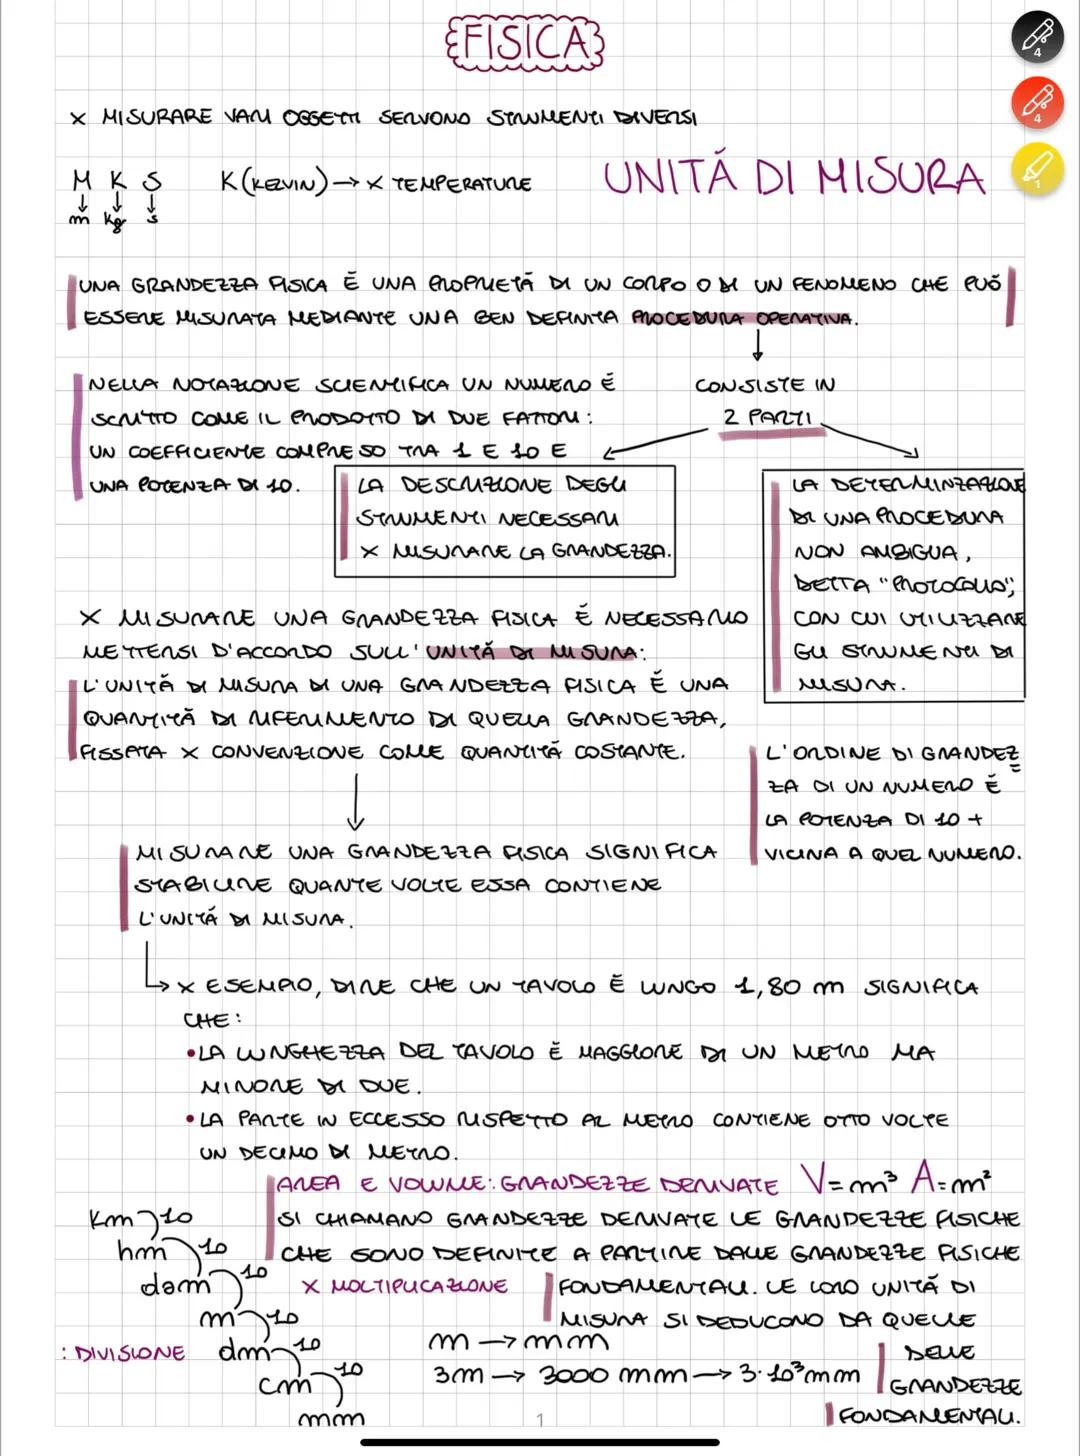 FISICA
4
4
1
X MISURARE VARI OGGETTI SERVONO STRUMENTI DIVERSI
M K S K (KELVIN) → X TEMPERATURE UNITÁ DI MISURA
↓ ↓ ↓
m kg s
UNA GRANDEZZA FISICA É UNA PROPRIETÁ DI UN CORPO O DI UN FENOMENO CHE PUÓ
ESSERE MISURATA MEDIANTE UNA BEN DEFINITA PROCEDURA OPERATIVA.
↓
CONSISTE IN
2 PARTI
NELLA NOTAZIONE SCIENTIFICA UN NUMERO É
SCRITTO COME IL PRODOTTO DI DUE FATTORI:
UN COEFFICIENTE COMPRESO TRA 1 E 10 E
UNA POTENZA DI 10.
LA DESCRIZIONE DEGLI
STRUMENTI NECESSARI
X MISURARE LA GRANDEZZA.
LA DETERMINZAZIONE
DI UNA PROCEDURA
NON AMBIGUA,
DETTA "PROTOCOLLO",
CON CUI UTILIZZARE
GLI STRUMENTI DI
MISURA.
X MISURARE UNA GRANDEZZA FISICA É NECESSARIO
METTERSI D'ACCORDO SULL'UNITÁ DI MISURA:
L'UNITÁ DI MISURA DI UNA GRANDEZZA FISICA É UNA
QUANTITÁ DI RIFERIMENTO DI QUELLA GRANDEZZA,
FISSATA X CONVENZIONE COME QUANTITÁ COSTANTE.
L'ORDINE DI GRANDEZ
ZA DI UN NUMERO É
LA POTENZA DI 10 +
VICINA A QUEL NUMERO.
↓
MISURARE UNA GRANDEZZA FISICA SIGNIFICA
STABILIRE QUANTE VOLTE ESSA CONTIENE
L'UNITÁ DI MISURA.
↳ X ESEMPIO, DIRE CHE UN TAVOLO É LUNGO 1,80 m SIGNIFICA
CHE:
• LA LUNGHEZZA DEL TAVOLO É MAGGIORE DI UN METRO MA
MINORE DI DUE.
• LA PARTE IN ECCESSO RISPETTO AL METRO CONTIENE OTTO VOLTE
UN DECIMO DI METRO.
AREA E VOLUME: GRANDEZZE DERIVATE V=m³ A=m²
SI CHIAMANO GRANDEZZE DERIVATE LE GRANDEZZE FISICHE
CHE SONO DEFINITE A PARTIRE DALLE GRANDEZZE FISICHE
FONDAMENTALI. LE LORO UNITÁ DI
MISURA SI DEDUCONO DA QUELLE
DELLE
GRANDEZZE
FONDAMENTALI.
Km 10
hm 10
dam 10
m 10
dm 10
cm 10
mm
X MOLTIPLICAZIONE
: DIVISIONE
m → mm
3m → 3000 mm → 3·10³mm
1